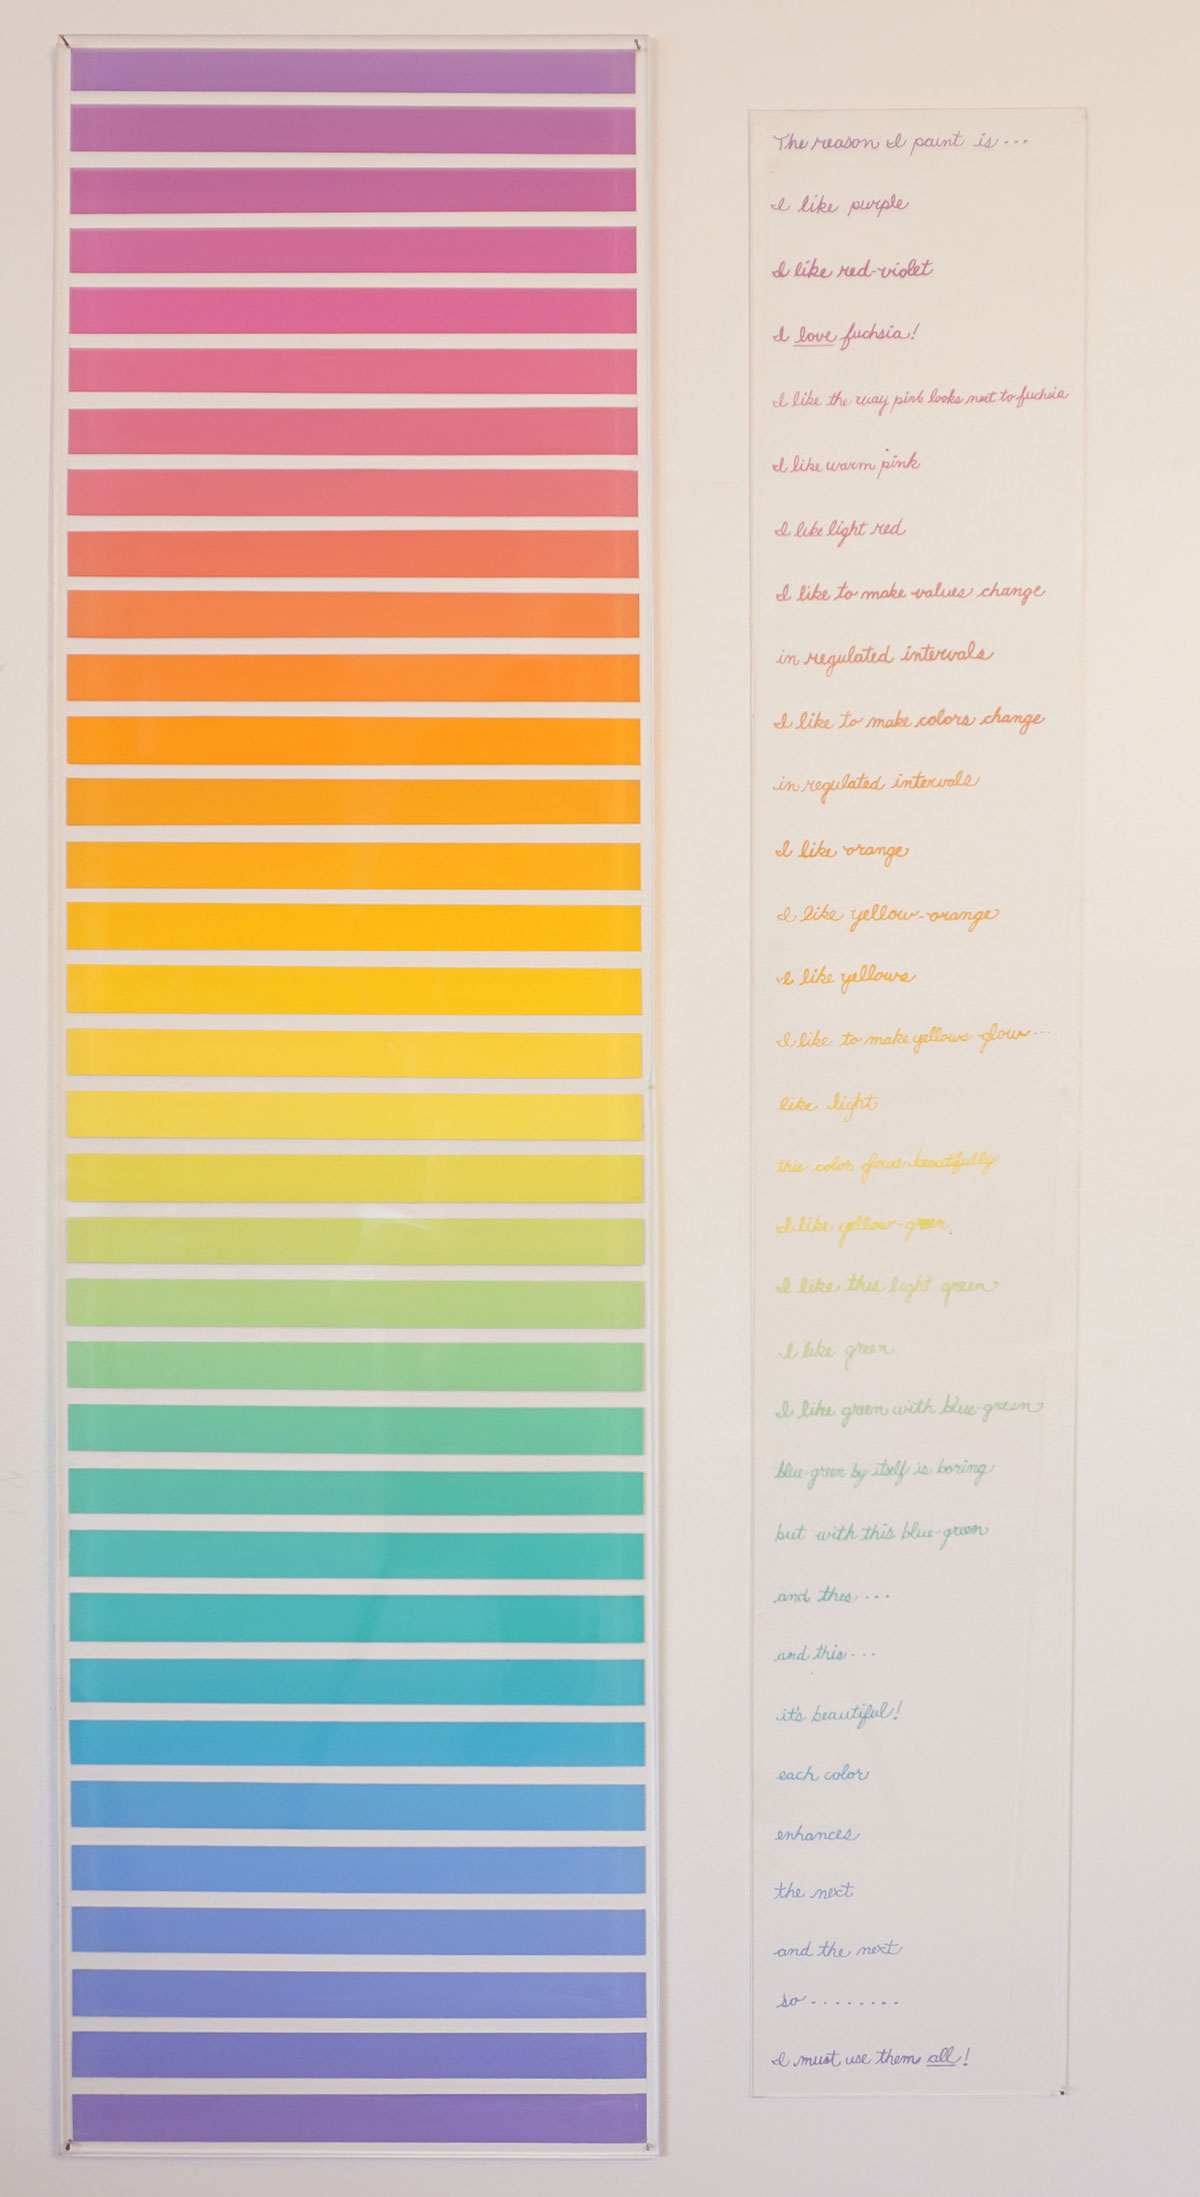 The reason I paint is...
I like purple
I like red-violet
I love fuchsia!
I like the way pink looks next to fuchsia
I like warm pink
I like light red
I like to make values change
in regulated intervals
I like to make colors change
in regulated intervals
I like orange
I like yellow-orange
I like yellows
I like to make yellows glow...
like light
this color glows beautifully
I like yellow-green
I like this light green
I like green
I like green with blue-green
blue-green by itself is boring
but with this blue-green
and this...
and this...
it's beautiful!
each color
enhances
the next
and the next
so........
I must use them all!